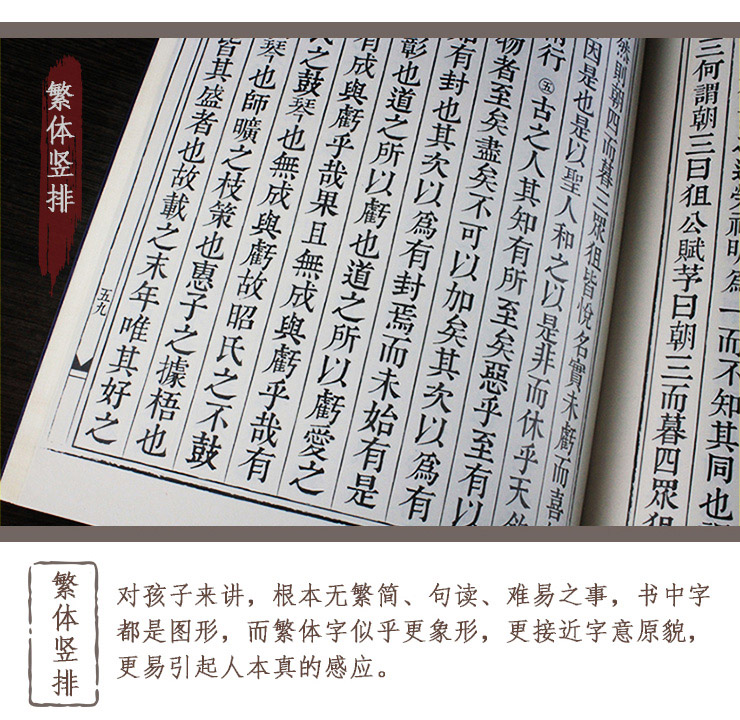 繁体竖排
勞神明為一而不知其同也
三何謂朝三曰狙公賦芧曰朝三而暮四眾狙
然則朝四而暮三眾狙皆悅名實未虧而喜
因是也是以聖人和之以是非而休乎天
行㊄古之人其知有所至矣惡乎至有以
物者至矣盡矣不可以加矣其次以為有
有封也其次以為有封焉而未始有是
彰也道之所以虧也道之所以虧愛之
有成與虧乎哉果且無成與虧乎哉有
之鼓琴也無成與虧故昭氏之不鼓
琴也師曠之枝策也惠子之據梧也
皆其盛者也故載之末年唯其好之
五九
繁体竖排
对孩子来讲，根本无繁简、句读、难易之事，书中字
都是图形，而繁体字似乎更象形，更接近字意原貌，
更易引起人本真的感应。